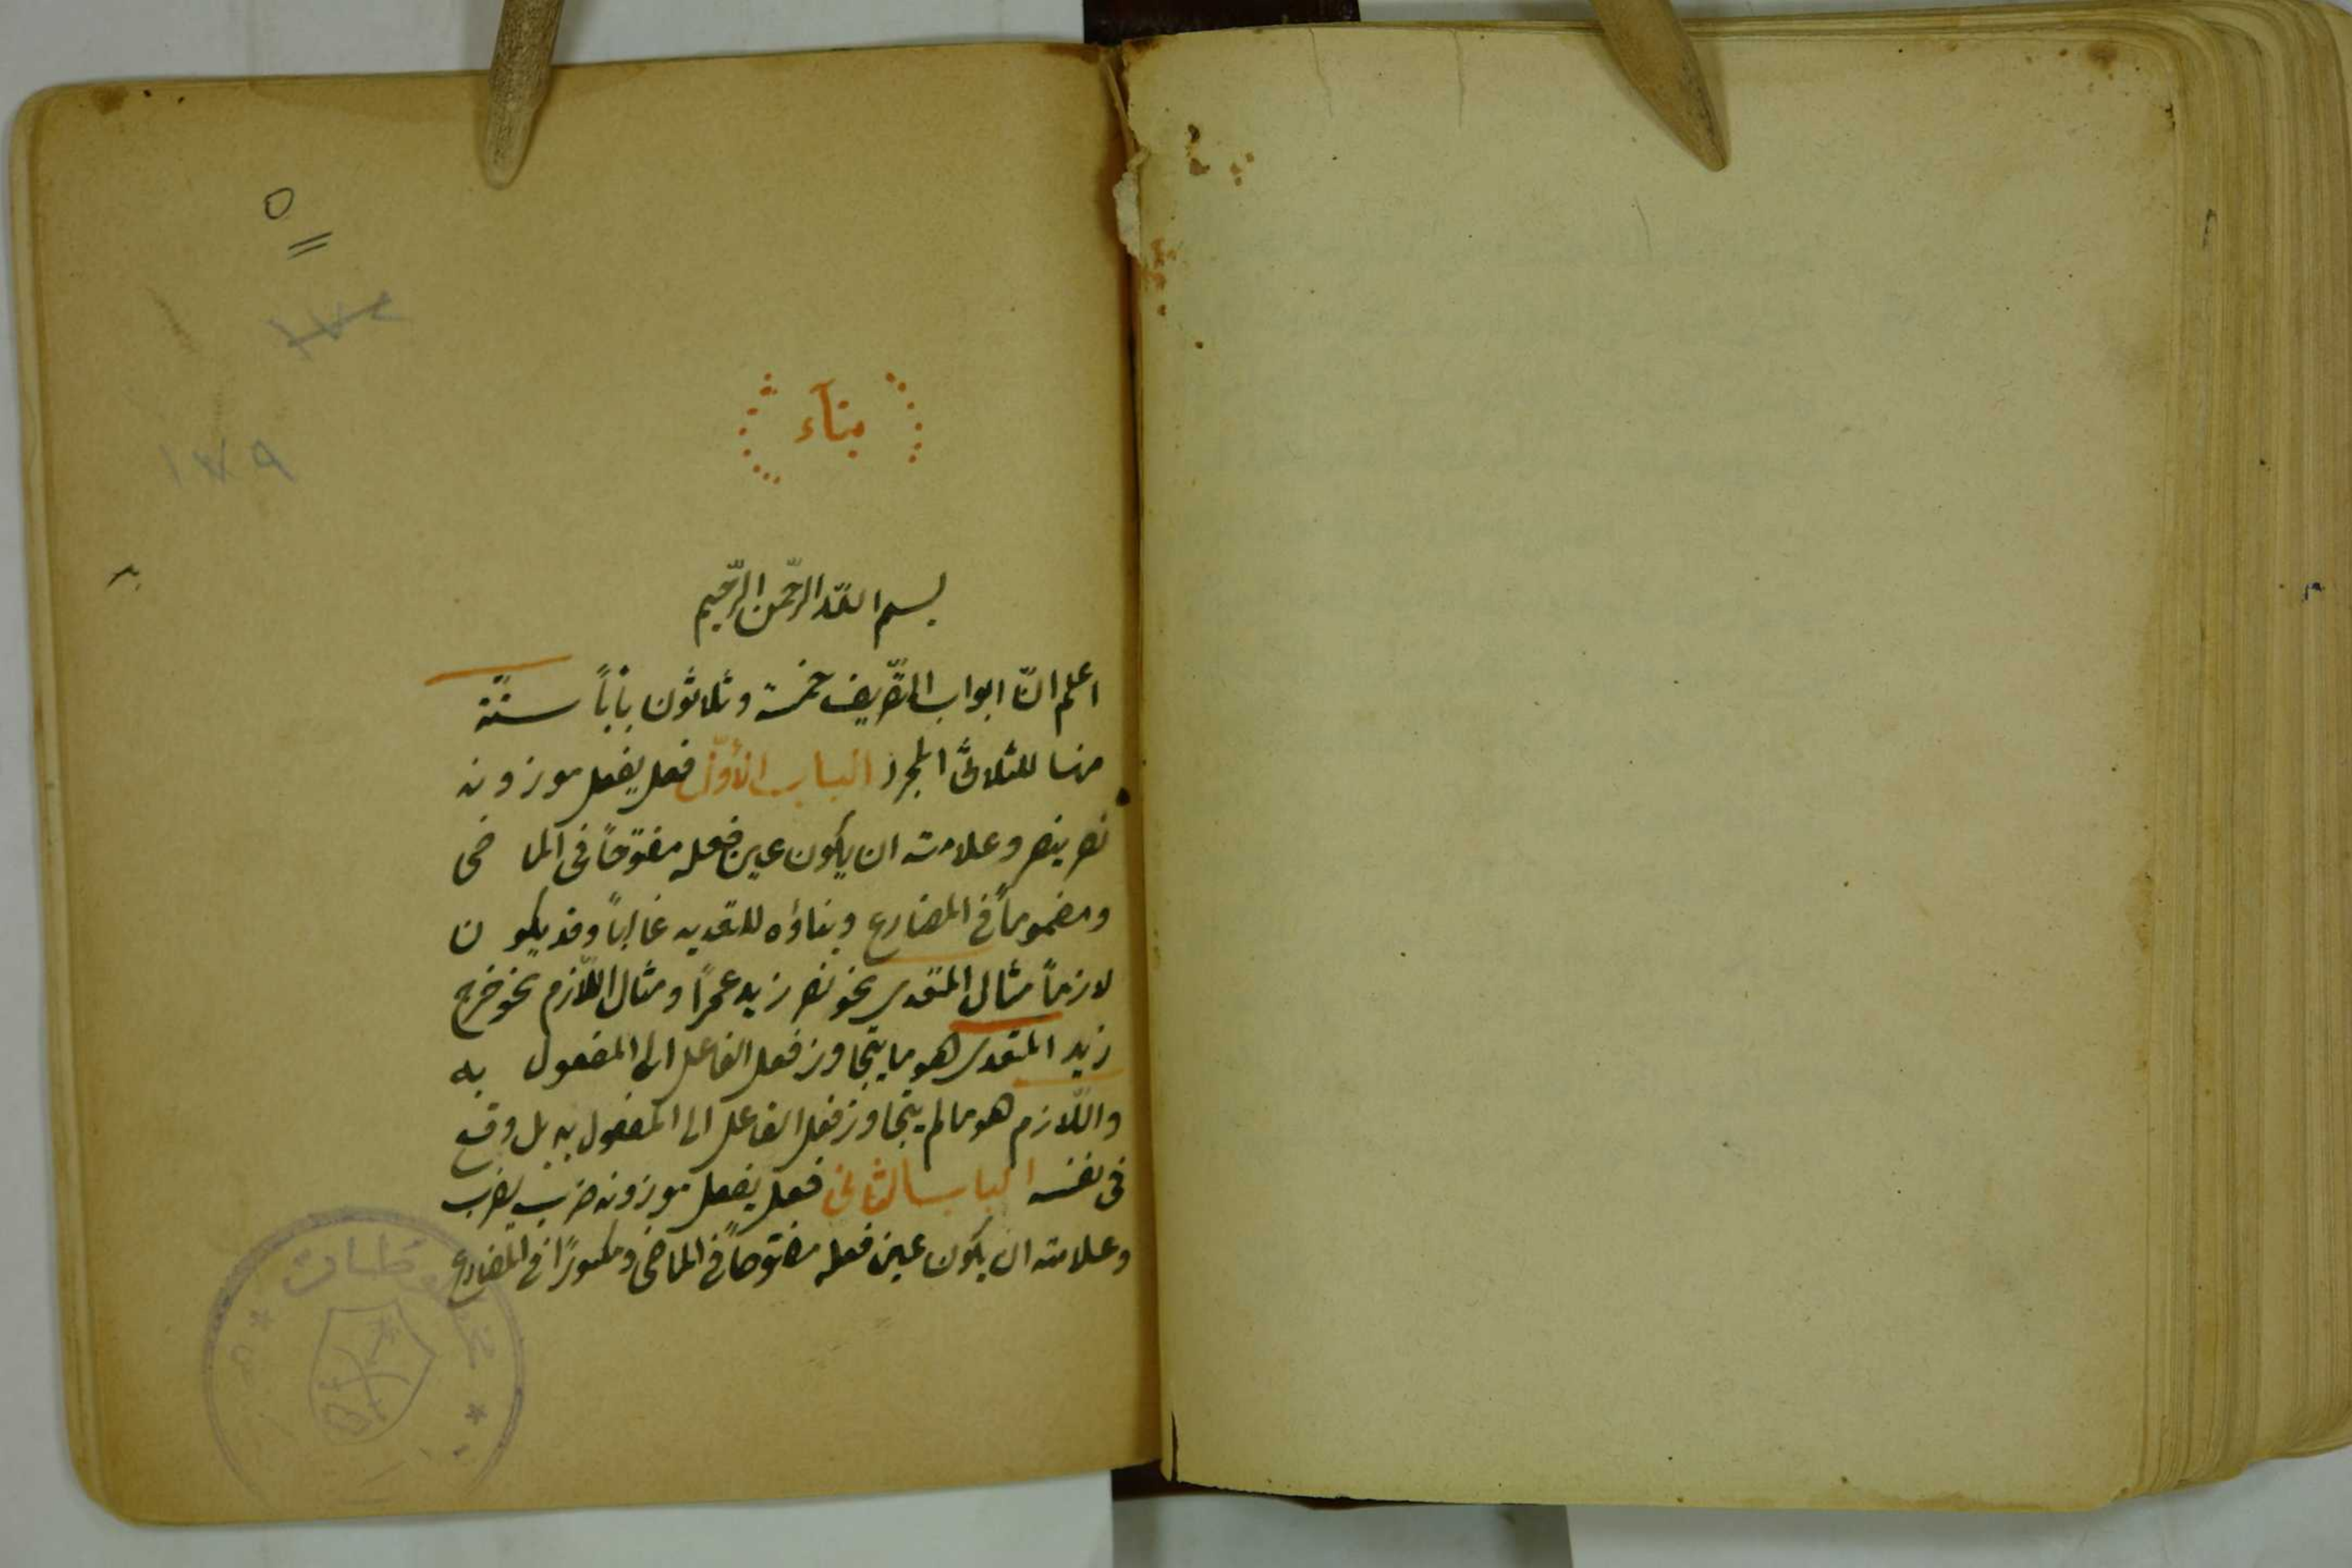 ٥
١٧٩
بنآء
بسم الله الرّحمن الرّحيم
اعلم انّ ابواب التّصريف خمسة وثلاثون باباً ستّة
منها للثلاثىّ المجرد الباب الأوّل فعل يفعل موزونه
نصر ينصر وعلامته ان يكون عين فعله مفتوحاً فى الماضى
ومضموماً فى المضارع وبناؤه للتعديه غالباً وقد يكون
لازماً مثال المتعدى نحو نصر زيد عمراً ومثال اللّازم نحو خرج
زيد المتعدى هو ما يتجاوز فعل الفاعل الى المفعول به
واللّازم هو ما لم يتجاوز فعل الفاعل الى المفعول به بل وقع
فى نفسه الباب الثانى فعل يفعل موزونه ضرب يضرب
وعلامته ان يكون عين فعله مفتوحاً فى الماضى ومكسورًا فى المضارع